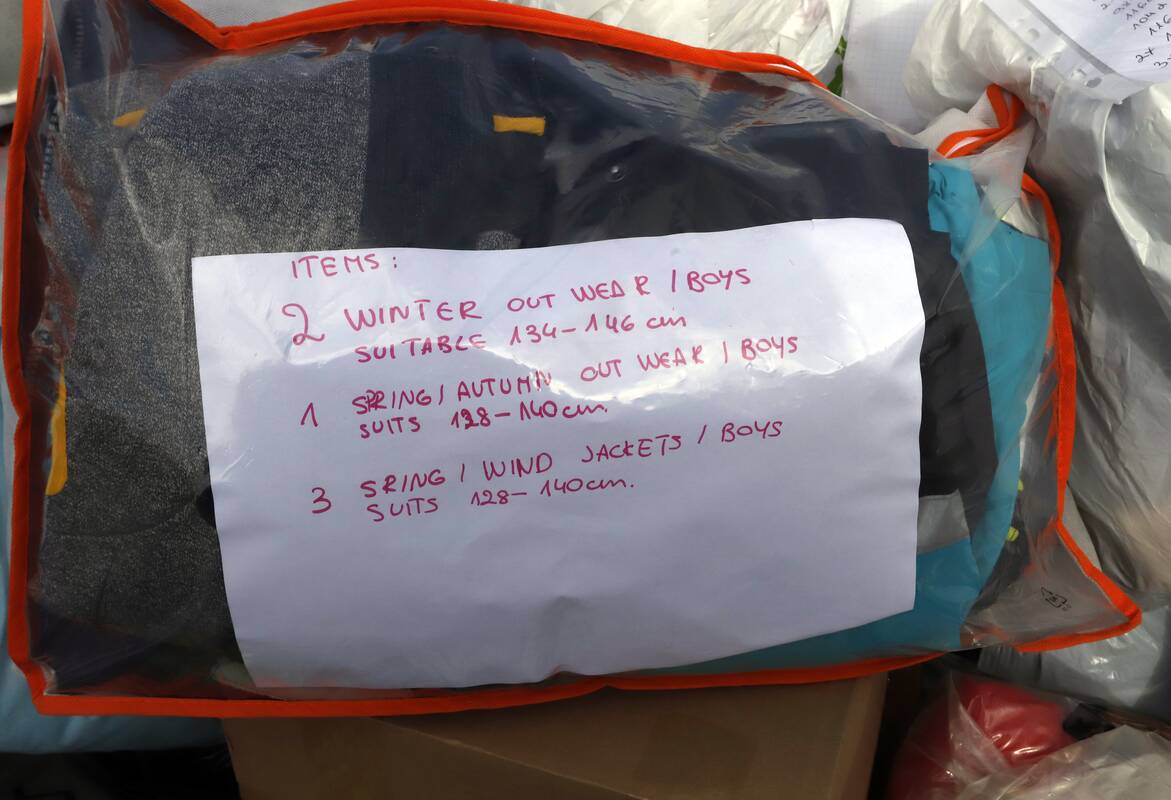 ITEMS:
2 WINTER OUT WEAR / BOYS
SUITABLE 134-146 cm
1 SPRING / AUTUMN OUT WEAR / BOYS
SUITS 128-140cm.
3 SRING / WIND JACKETS / BOYS
SUITS 128- 140cm.
116
2x